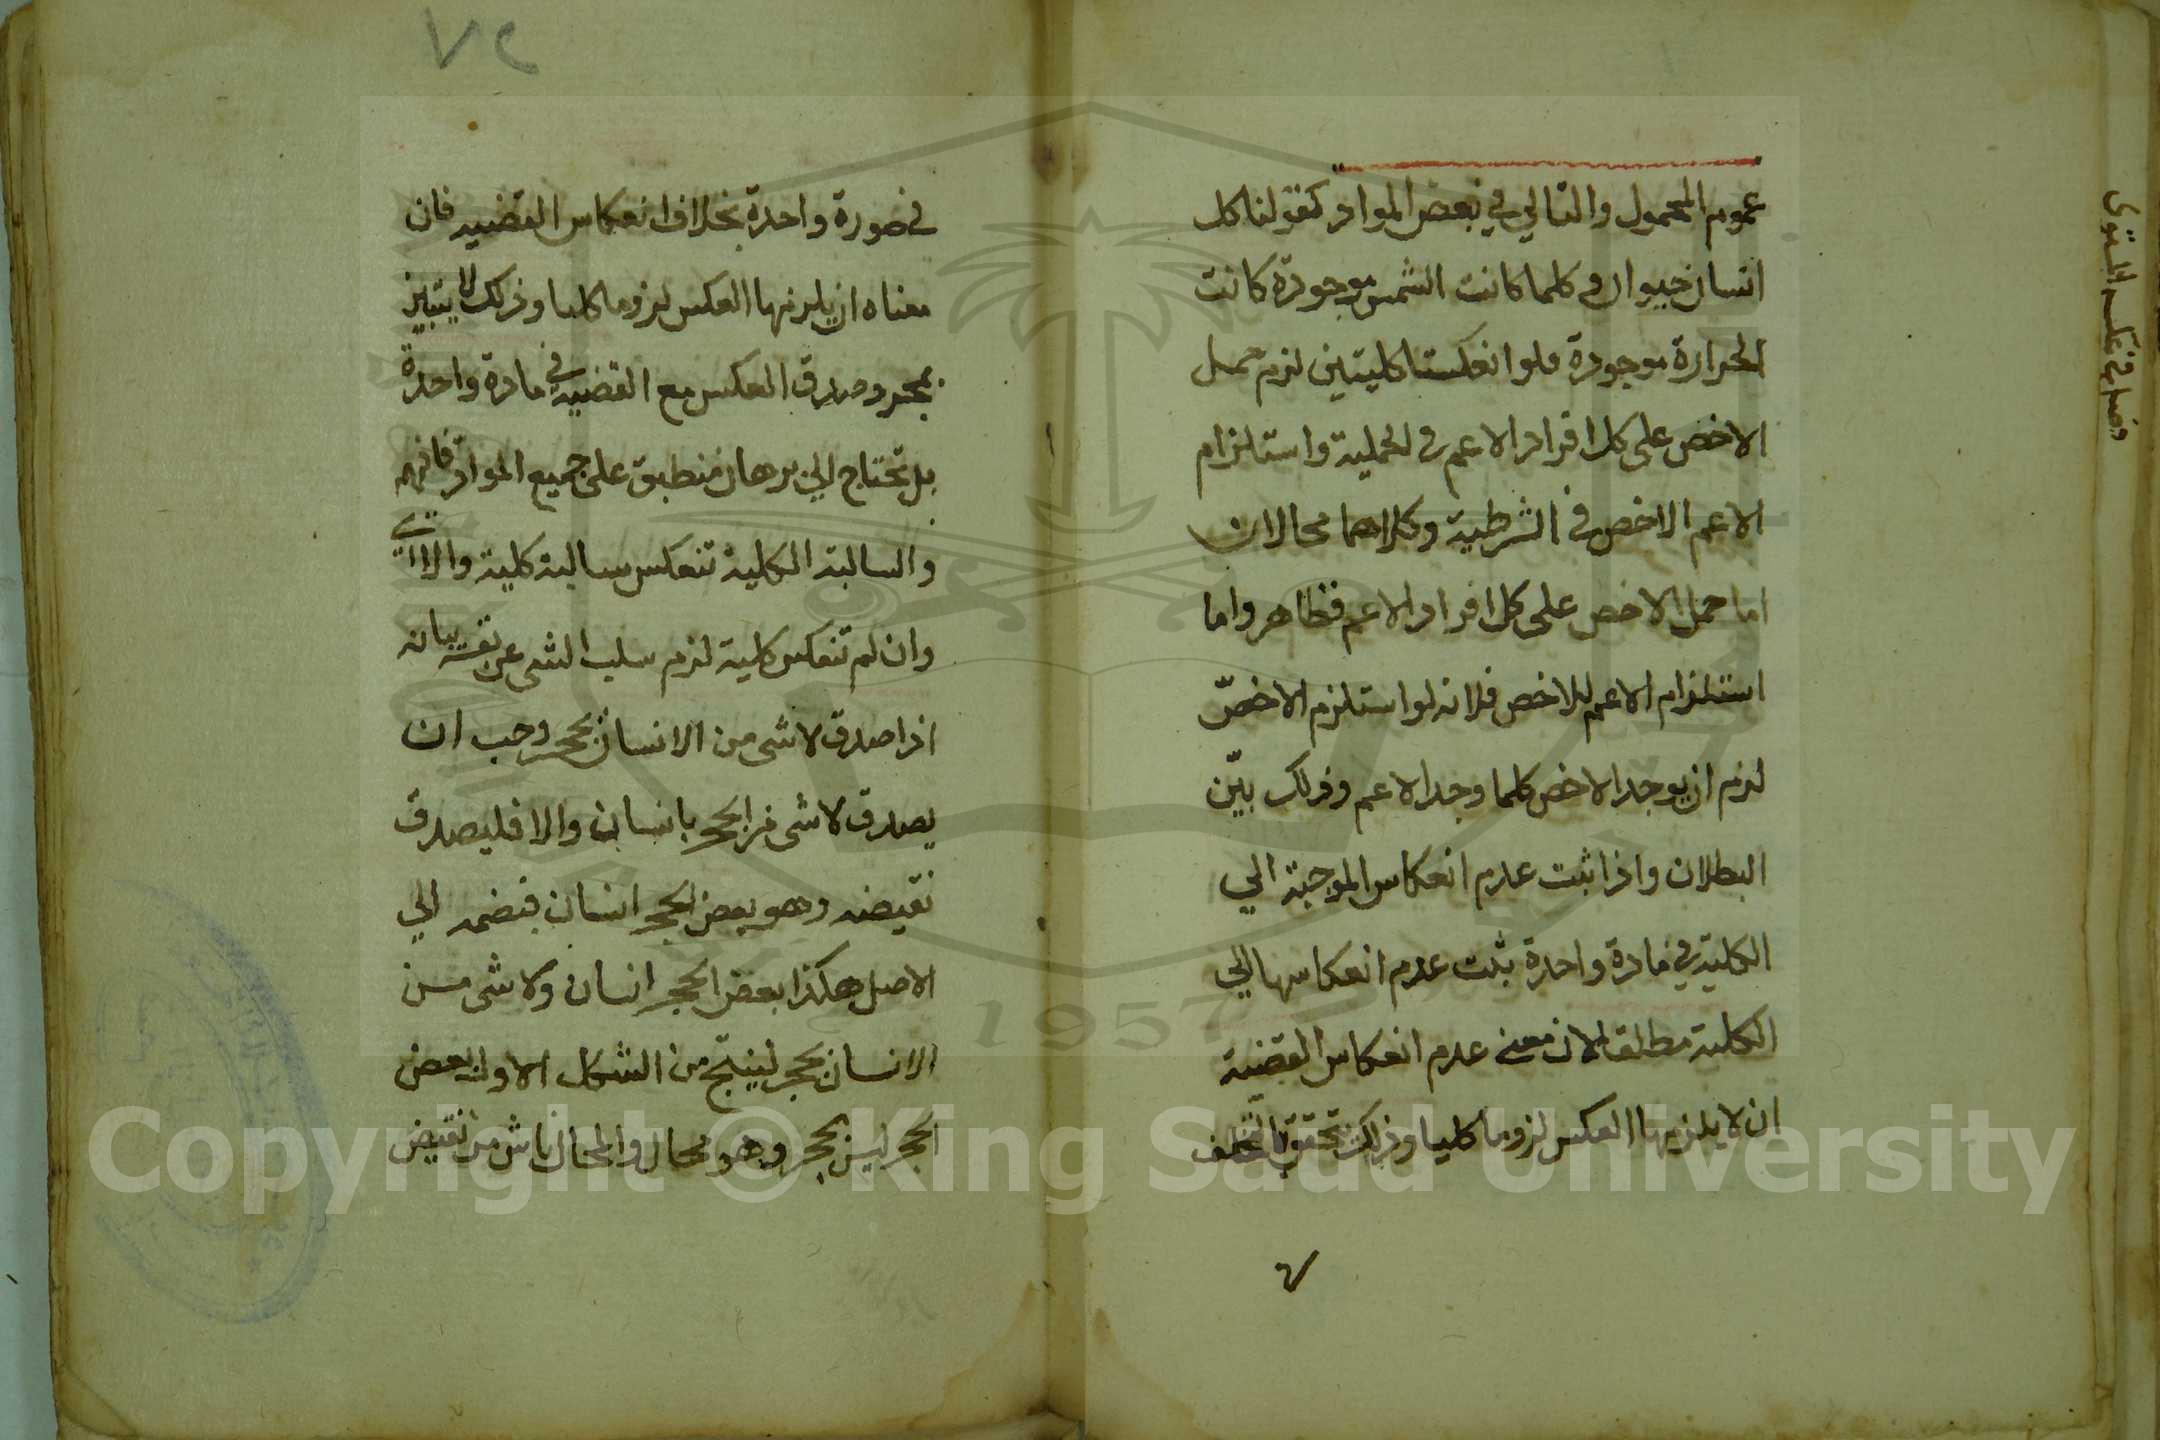 عموم المحمول والتالي في بعض المواد كقولنا كل
انسان حيوان وكلما كانت الشمس موجودة كانت
الحرارة موجودة فلو انعكستا كليتين لزم حمل
الاخص على كل افراد الاعم في الحملية واستلزام
الاعم الاخص في الشرطية وكلاهما محالان
اما حمل الاخص على كل افراد الاعم فظاهر واما
استلزام الاعم للاخص فلانه لو استلزم الاخصّ
لزم ان يوجد الاخص كلما وجد الاعم وذلك بيّن
البطلان واذا ثبت عدم انعكاس الموجبة الي
الكلية في مادة واحدة ثبت عدم انعكاسها الي
الكلية مطلقا لان معني عدم انعكاس القضية
ان لا يلزمها العكس لزوما كليا وذلك تحقق بالتخلف
في صورة واحدة بخلاف انعكاس القضيه فان
معناه ان يلزمها العكس لزوما كليا وذلك لا يتبين
بمجرد صدق العكس مع القضيه في مادة واحدة
بل تحتاج الي برهان منطبق على جميع المواد فافهم
والسالبة الكلية تنعكس سالبة كلية والا
وان لم تنعكس كلية لزم سلب الشى عن نفسه بيانه
اذا صدق لا شى من الانسان بحجر وجب ان
يصدق لا شى من الحجر بانسان والا فليصدق
نقيضه وهو بعض الحجر انسان فيضمه الي
الاصل هكذا بعض الحجر انسان ولا شى من
الانسان بحجر لينتج من الشكل الاول بعض
الحجر ليس بحجر وهو محال والمحال ناش من نقيض
٧٢
Copyright © King Saud University
1957